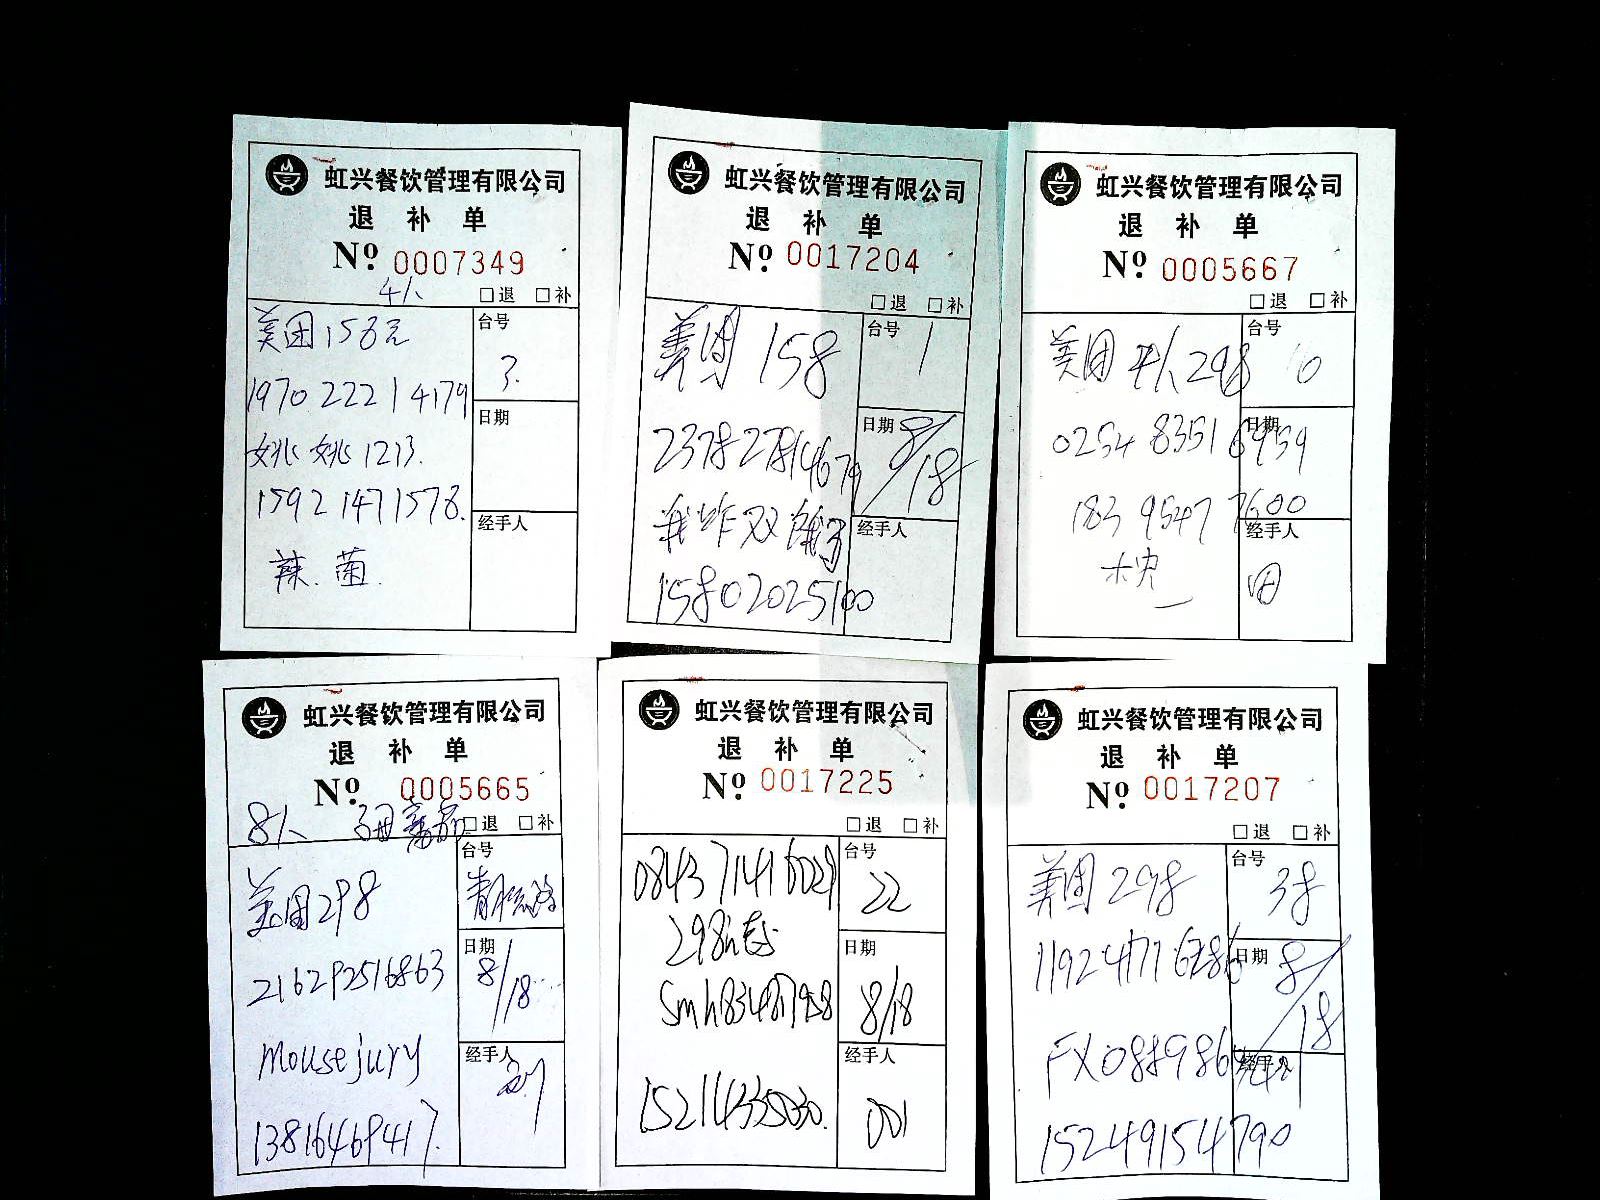 虹兴餐饮管理有限公司
退 补 单
Nº 0007349
4人
□退 □补
美团158元
台号
3.
1970 2221 4179
日期
姚姚1213.
1592 1471578.
经手人
辣. 菌.
虹兴餐饮管理有限公司
退 补 单
Nº 0017204
□退 □补
美团 158
台号
1
2378 2781 4679
日期
8/18
我炸双饿了
经手人
15802025100
虹兴餐饮管理有限公司
退 补 单
Nº 0005667
□退 □补
美团 4人298
台号
10
0254 8351 6959
日期
183 9547 7600
经手人
田
虹兴餐饮管理有限公司
退 补 单
Nº 0005665
8人
□退 □补
美团298
台号
216292516863
日期
8/18
mousejury
经手人
13816469417.
虹兴餐饮管理有限公司
退 补 单
Nº 0017225
□退 □补
0843 7141 6029
台号
22
298
日期
8/18
经手人
001
15214335030.
虹兴餐饮管理有限公司
退 补 单
Nº 0017207
□退 □补
美团298
台号
38
1192 4771 6286
日期
8/18
经手人
15249154790